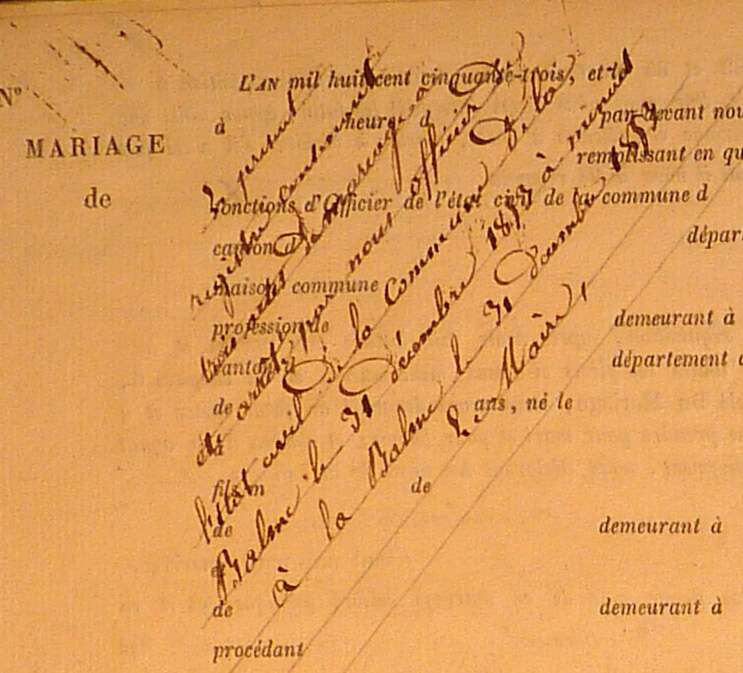 N°
MARIAGE
de
L'AN mil huit cent cinquante-trois, et l
à heure d par devant nou
remplissant en qu
fonctions d'Officier de l'état civil de la commune d
canton d départ
maison commune
profession de demeurant à
canton d département d
de ans, né le
à
fils m de
de demeurant à
et
de demeurant à
procédant
Le présent
registre contenant
trois actes de mariage a
été arrêté par nous officier de
l'état civil de la commune de la
Balme le 31 décembre 1853 à minuit
à la Balme le 31 décembre 1853
Le Maire,